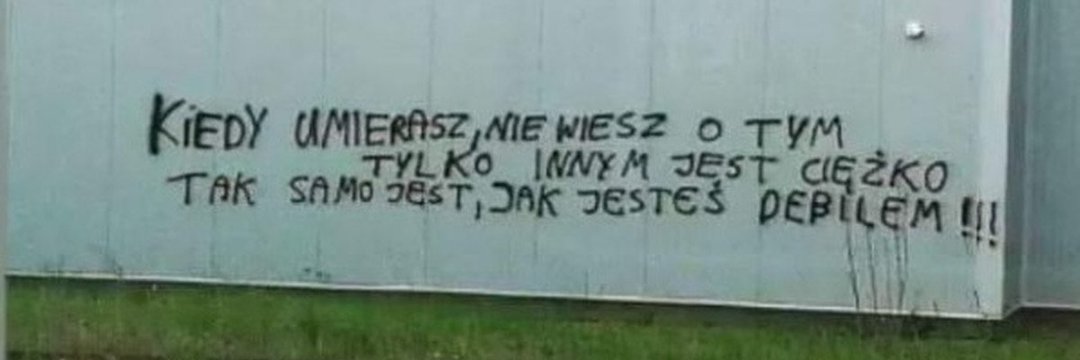 KiEDY UMIERASZ, NIE WIESZ O TYM
TYLKO INNYM JEST CIĘŻKO
TAK SAMO JEST, JAK JESTEŚ DEBILEM !!!